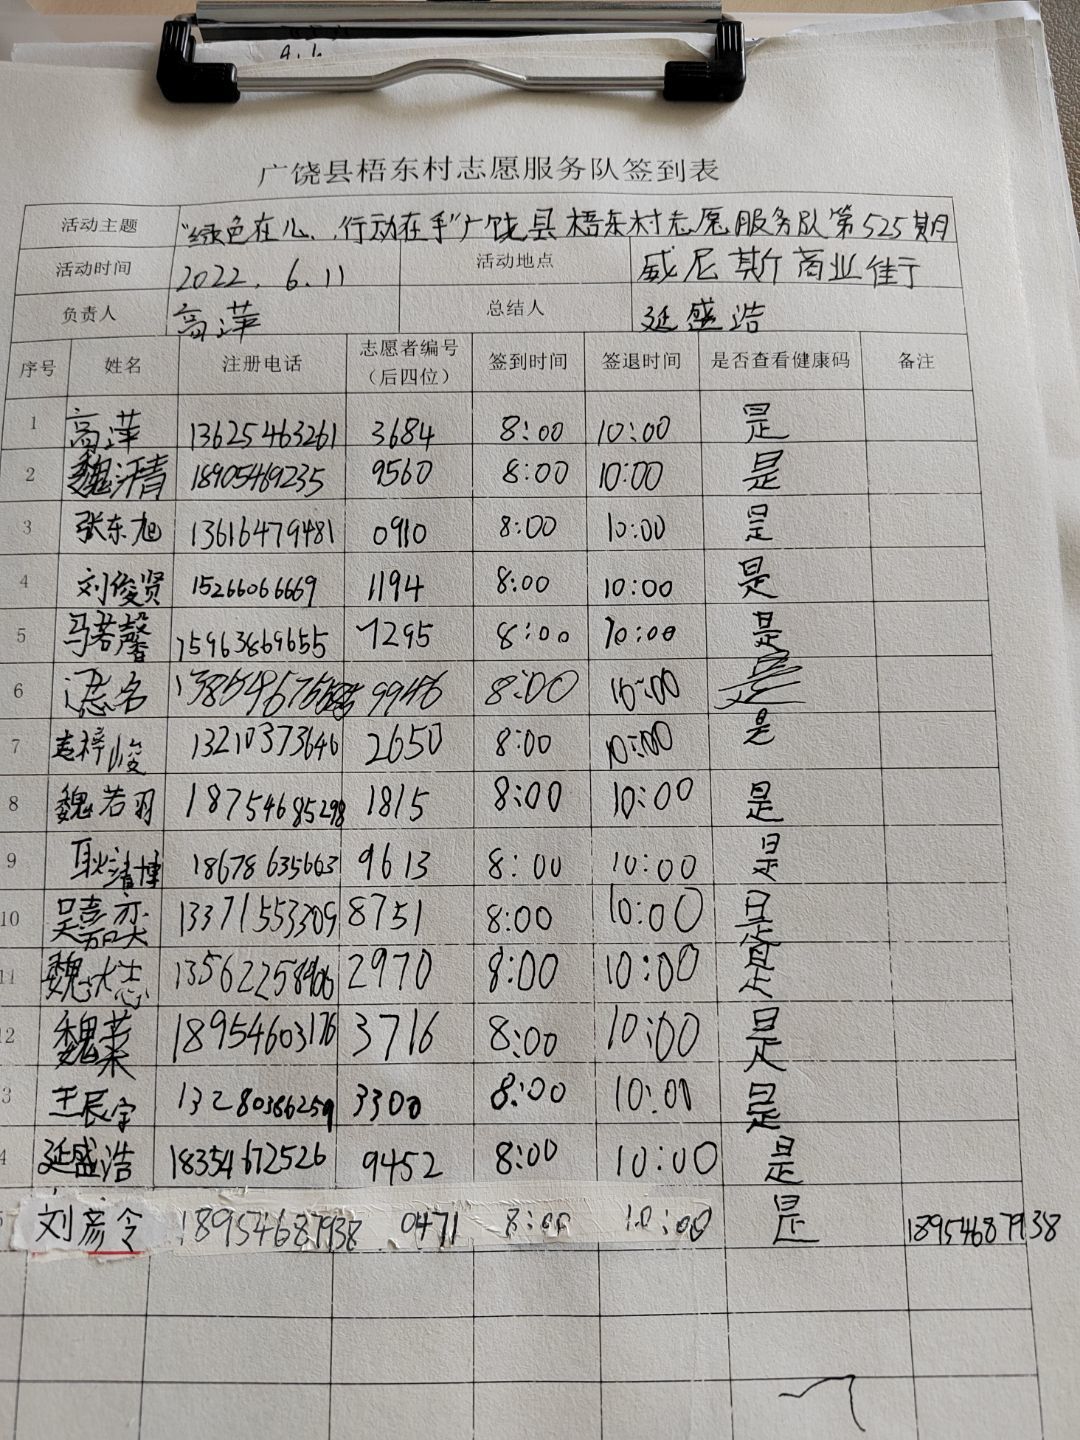 广饶县梧东村志愿服务队签到表
活动主题 "绿色在心、行动在手"广饶县梧东村志愿服务队第525期月
活动时间 2022.6.11 活动地点 威尼斯商业街
负责人 高萍 总结人 延盛浩
序号 姓名 注册电话 志愿者编号（后四位） 签到时间 签退时间 是否查看健康码 备注
1 高萍 13625463261 3684 8:00 10:00 是
2 魏汧青 18905469235 9560 8:00 10:00 是
3 张东旭 13616479481 0910 8:00 10:00 是
4 刘俊贤 15266066669 1194 8:00 10:00 是
5 马若馨 15963869655 7295 8:00 10:00 是
6 9946 8:00 10:00 是
7 梓峻 13210373646 2650 8:00 10:00 是
8 魏若羽 18754685298 1815 8:00 10:00 是
9 耿清博 18678635663 9613 8:00 10:00 是
10 吴嘉奕 13371553309 8751 8:00 10:00 是
11 魏 13562258906 2970 8:00 10:00 是
12 魏菜 18954603176 3716 8:00 10:00 是
3 王辰宇 13280386259 3300 8:00 10:00 是
4 延盛浩 18354672526 9452 8:00 10:00 是
5 刘彦令 18954687938 0471 8:00 10:00 是 18954687938